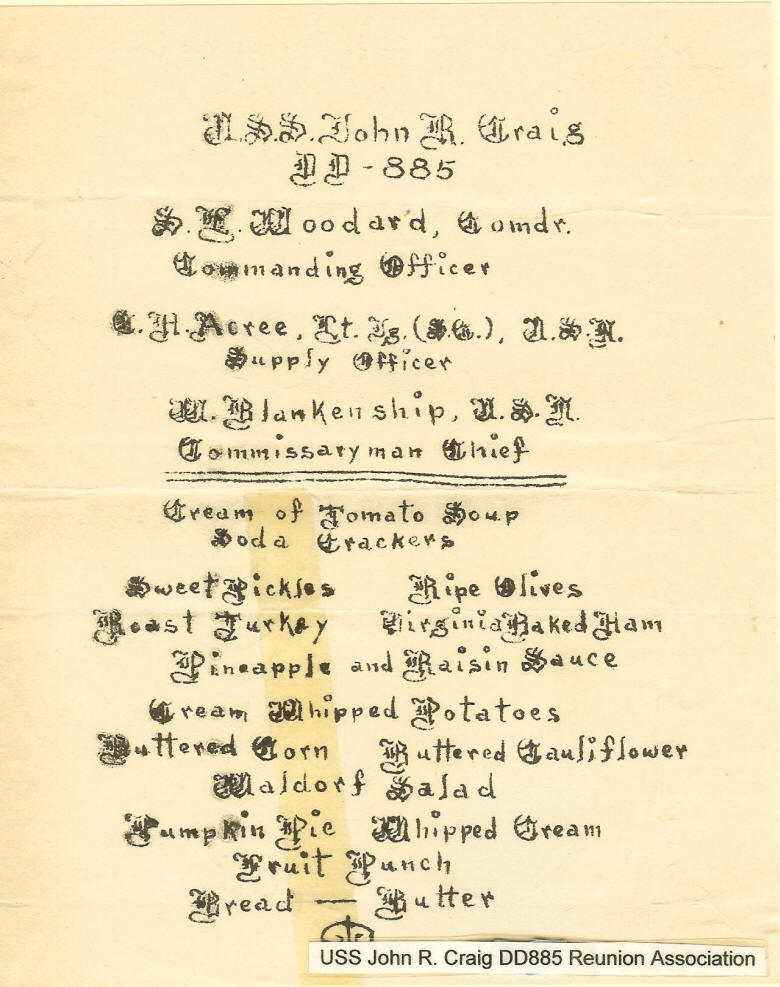 U.S.S. John R. Craig
DD-885
S. L. Woodard, Comdr.
Commanding Officer
C. H. Acree, Lt. Jg. (S.C.), U.S.N.
Supply Officer
W. Blankenship, U.S.N.
Commissaryman Chief
Cream of Tomato Soup
Soda Crackers
Sweet Pickles Ripe Olives
Roast Turkey Virginia Baked Ham
Pineapple and Raisin Sauce
Cream Whipped Potatoes
Buttered Corn Buttered Cauliflower
Waldorf Salad
Pumpkin Pie Whipped Cream
Fruit Punch
Bread — Butter
USS John R. Craig DD885 Reunion Association